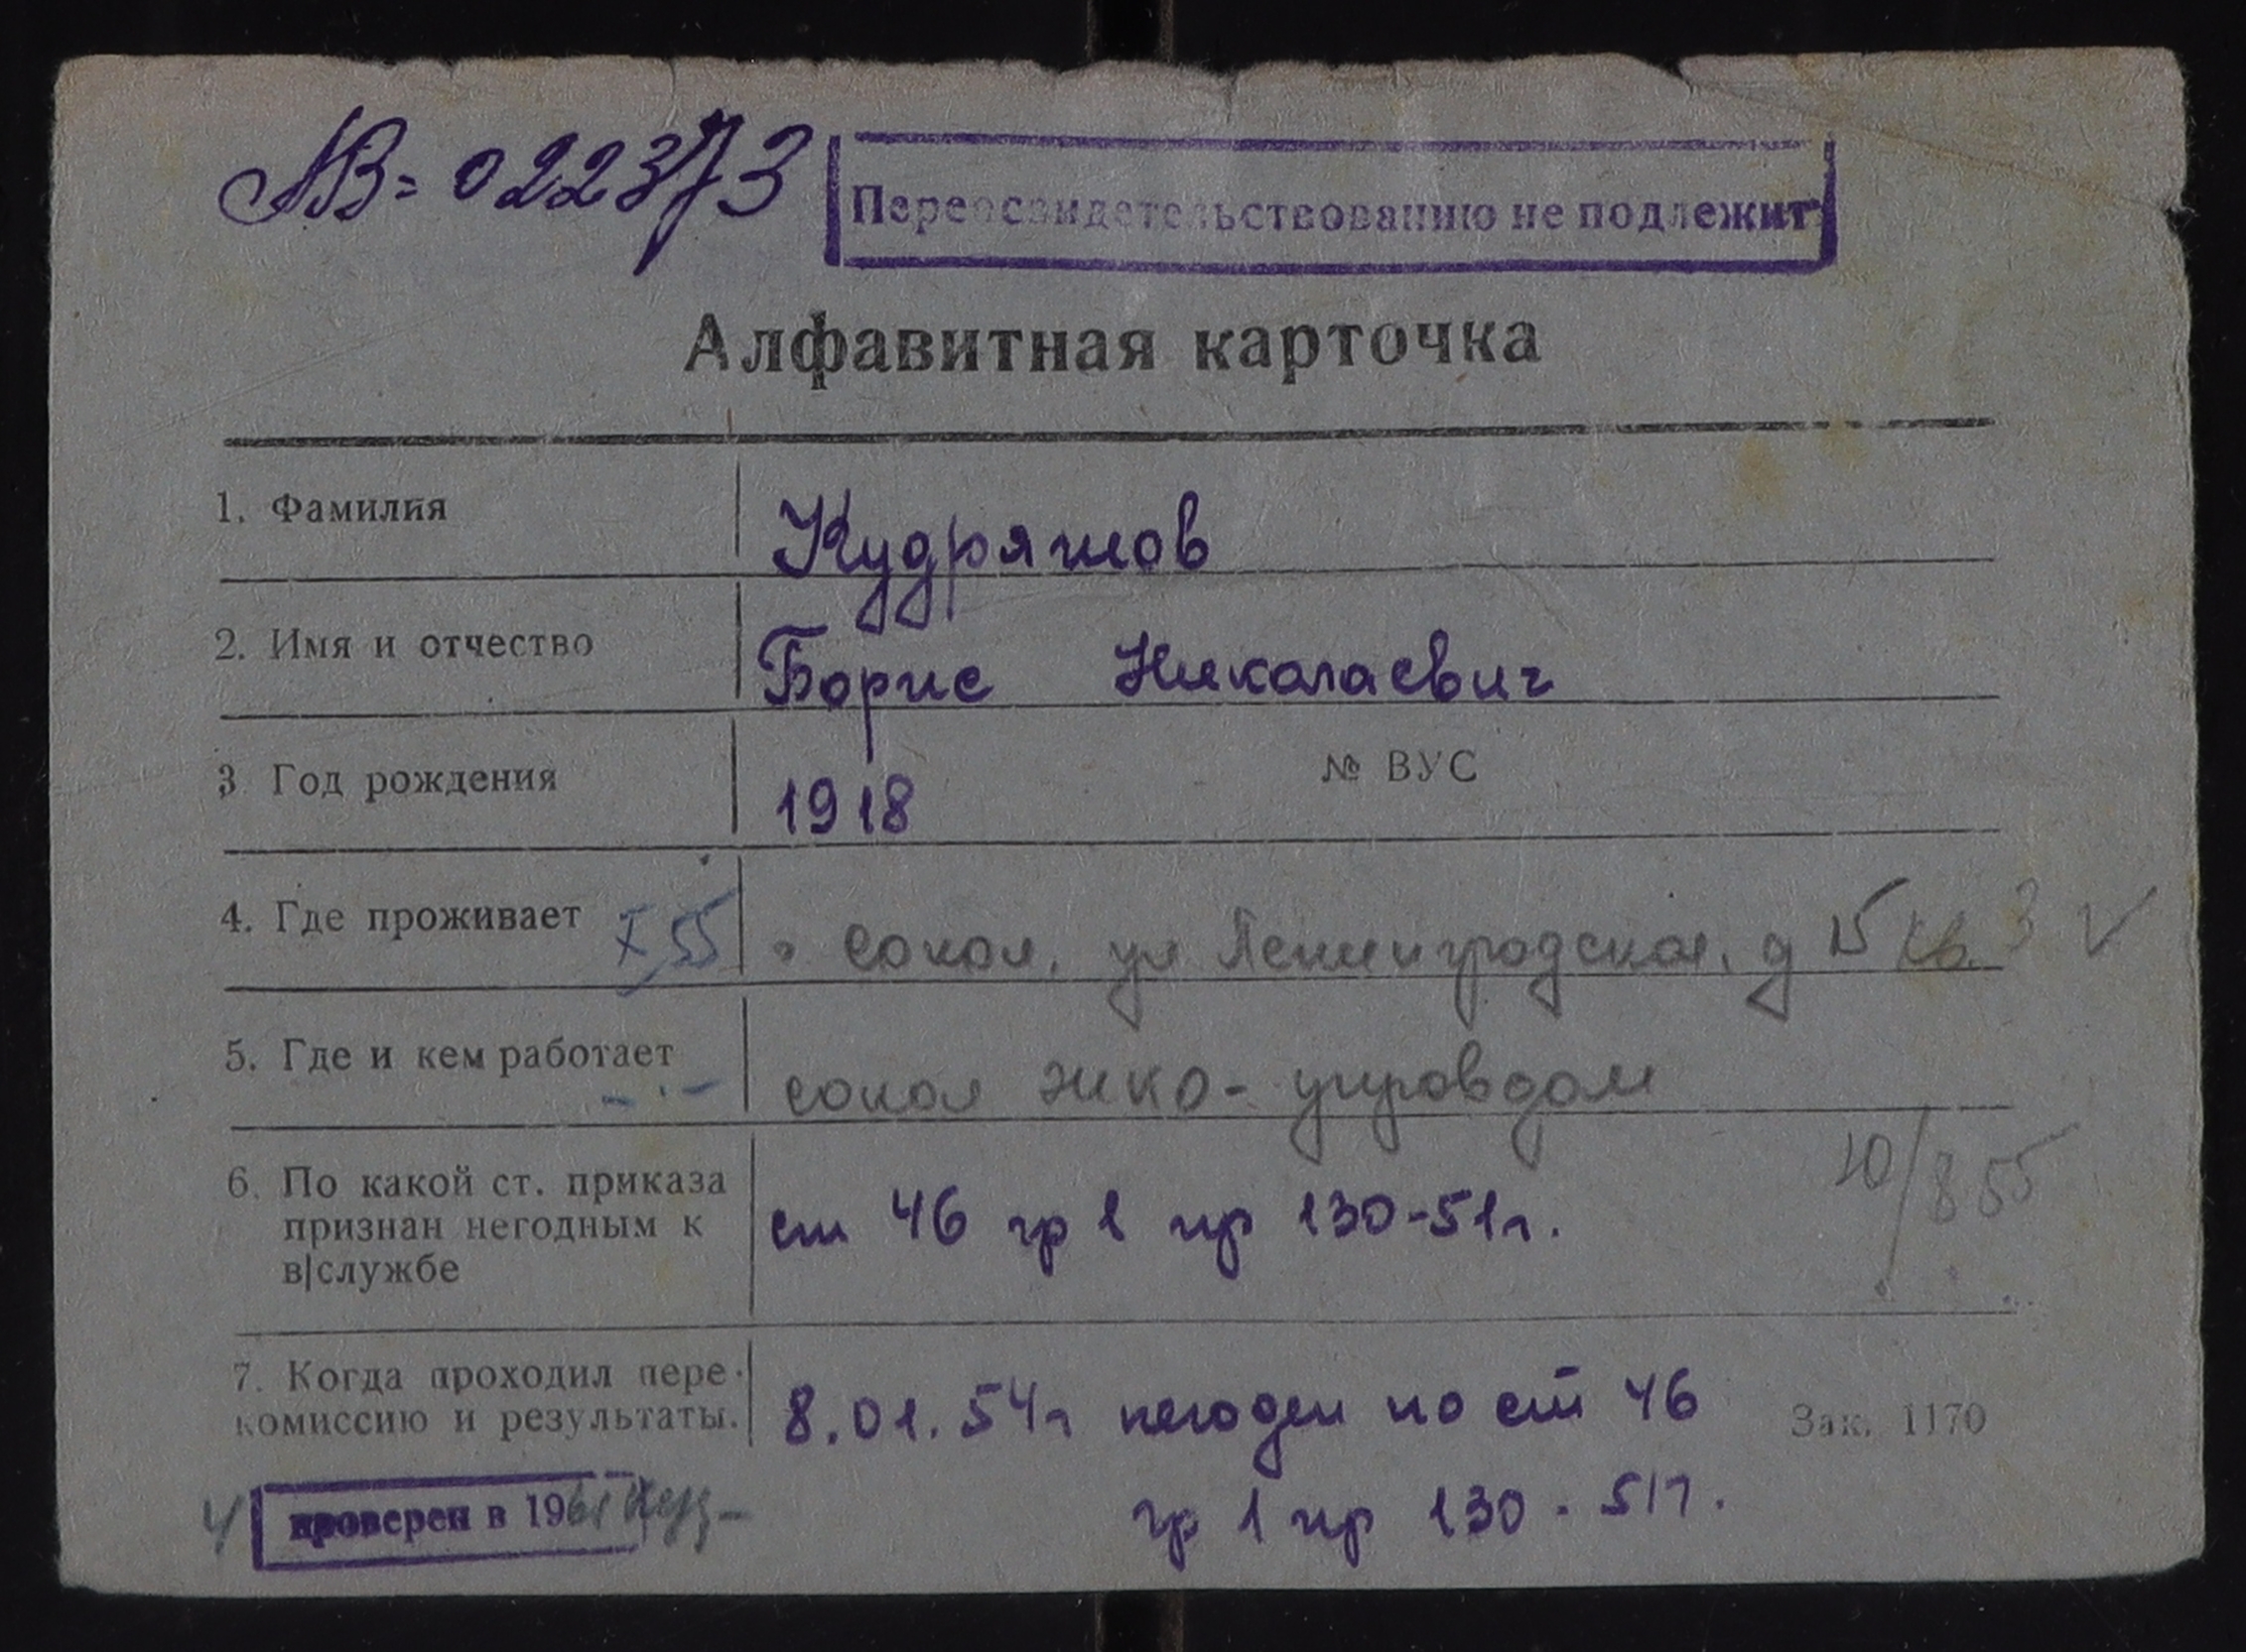 АВ=0223773
Переосвидетельствованию не подлежит
Алфавитная карточка
1. Фамилия Кудряшов
2. Имя и отчество Борис Николаевич
3 Год рождения 1918 № ВУС
4. Где проживает X 55 г Сокол, ул Ленинградская, д 15 кв. 3 V
5. Где и кем работает — · — сокол ЖКО - управдом
6. По какой ст. приказа ст 46 гр 1 пр 130-51г. 10/8 55
признан негодным к
в|службе
7. Когда проходил пере- 8.01.54г негоден по ст 46
комиссию и результаты. Зак. 1170
гр 1 пр 130 - 51г.
4 проверен в 1961